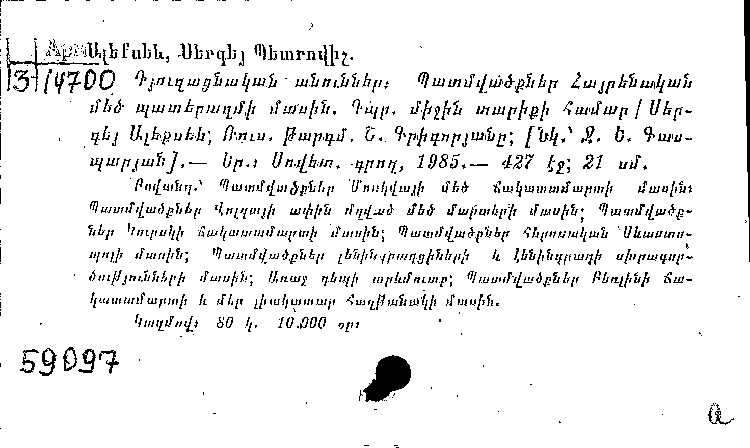 Ալեքսեև, Սերգեյ Պետրովիչ.
3 14700 Գյուղացնական անուններ: Պատմվածքներ Հայրենական
մեծ պատերազմի մասին. Դպր. միջին տարիքի համար / Սեր-
գեյ Ալեքսեև; Ռուս. թարգմ. Ն. Գրիգորյանը; [Նկ.՝ Ջ. Ե. Գաս-
պարյան].— Եր.: Սովետ. գրող, 1985.— 427 էջ; 21 սմ.
Բովանդ.՝ Պատմվածքներ Մոսկվայի մեծ ճակատամարտի մասին:
Պատմվածքներ Վոլգայի ափին մղված մեծ մարտերի մասին; Պատմվածք-
ներ Կուրսկի ճակատամարտի մասին; Պատմվածքներ Հերոսական Սևաստո-
պոլի մասին; Պատմվածքներ լենինգրադցիների և Լենինգրադի սխրագոր-
ծությունների մասին; Առաջ դեպի արևմուտք; Պատմվածքներ Բեռլինի ճա-
կատամարտի և մեր լիակատար Հաղթանակի մասին.
Կազմով: 80 կ. 10.000 օր:
59097
a